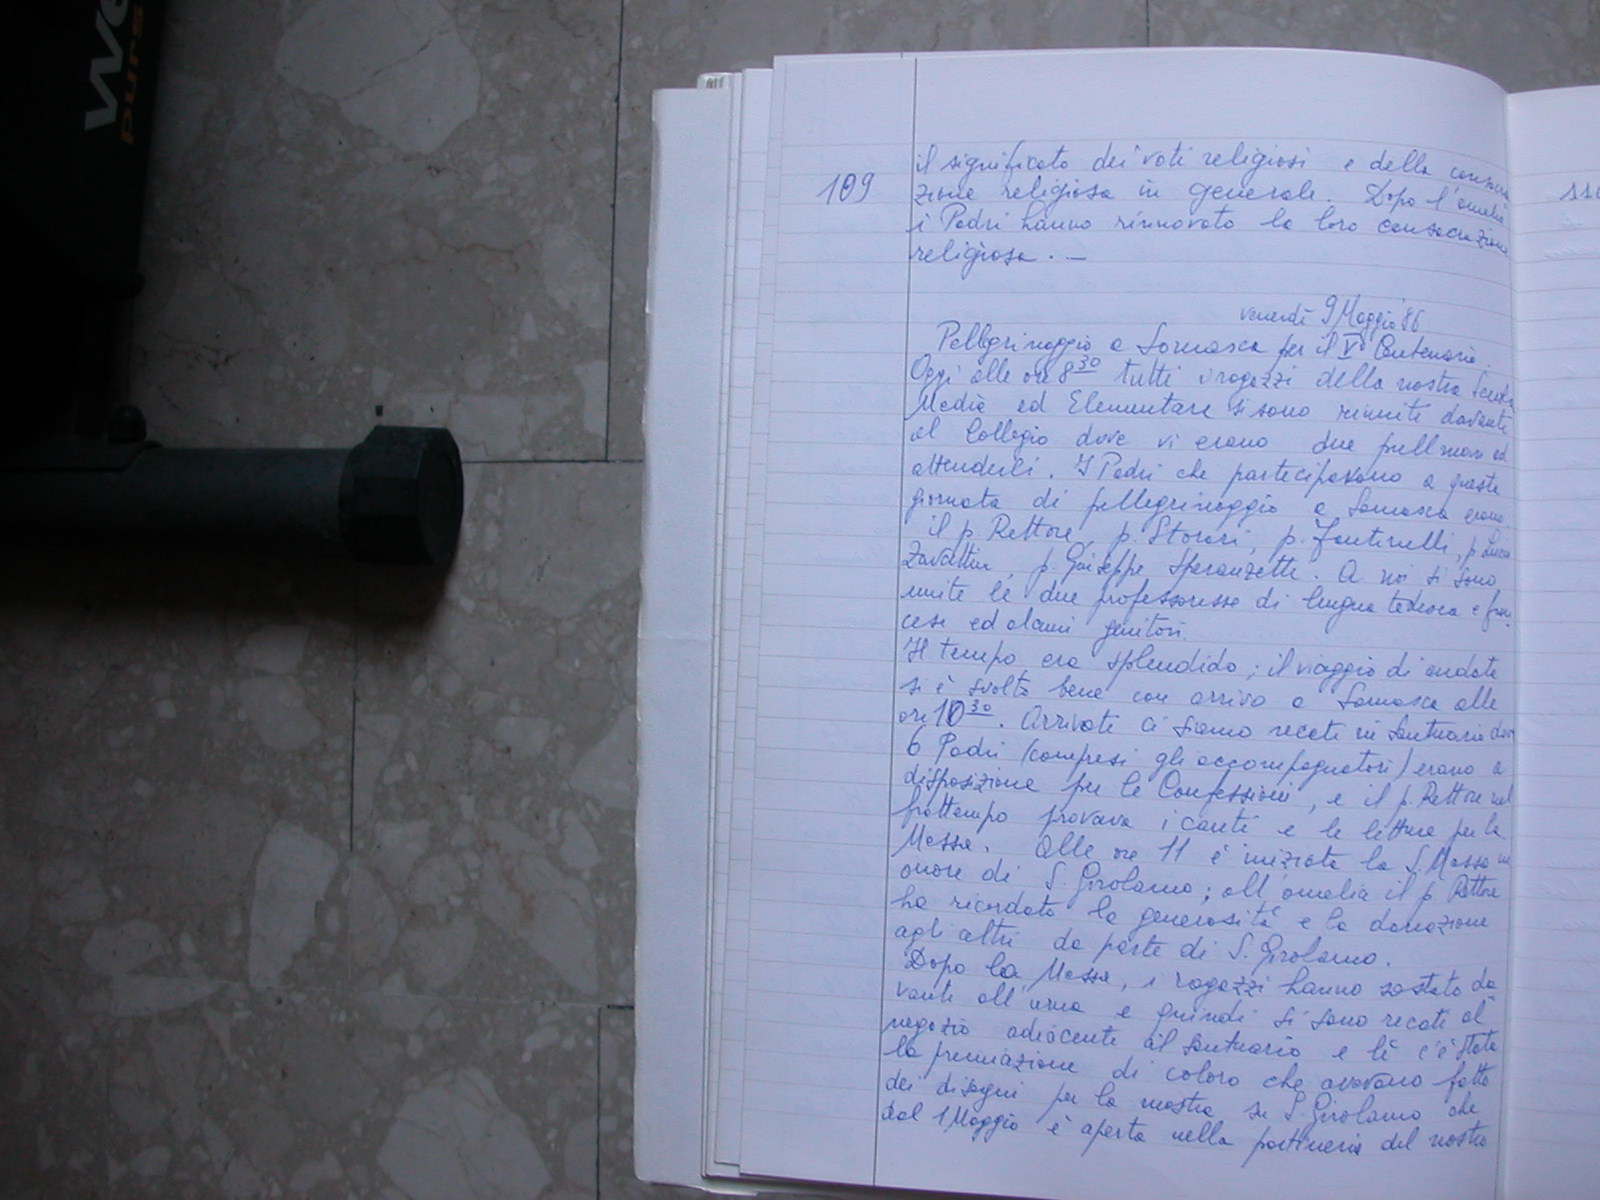 We
purs
109
110
il significato dei voti religiosi e della consacra
zione religiosa in generale. Dopo l'omelia
i Padri hanno rinnovato la loro consacrazione
religiosa. —
venerdì 9 Maggio '86
Pellegrinaggio a Somasca per il V° Centenario.
Oggi alle ore 8 30 tutti i ragazzi della nostra Scuola
Media ed Elementare si sono riuniti davanti
al Collegio dove vi erano due pullman ad
attenderli. I Padri che partecipavano a questa
giornata di pellegrinaggio a Somasca erano
il p. Rettore, p. Storari, p. Fantinelli, p. Luca
Zavattin, p. Giuseppe Speranzetti. A noi si sono
unite le due professoresse di lingua tedesca e fran
cese ed alcuni genitori.
Il tempo era splendido; il viaggio di andata
si è svolto bene con arrivo a Somasca alle
ore 10 30. Arrivati ci siamo recati in Santuario dove
6 Padri (compresi gli accompagnatori) erano a
disposizione per le Confessioni, e il p. Rettore nel
frattempo provava i canti e le letture per la
Messa. Alle ore 11 è iniziata la S. Messa in
onore di S. Girolamo; all'omelia il p. Rettore
ha ricordato la generosità e la donazione
agli altri da parte di S. Girolamo.
Dopo la Messa, i ragazzi hanno sostato da
vanti all'urna e quindi si sono recati al
negozio adiacente al santuario e lì c'è stata
la premiazione di coloro che avevano fatto
dei disegni per la mostra su S. Girolamo che
dal 1 Maggio è aperta nella portineria del nostro